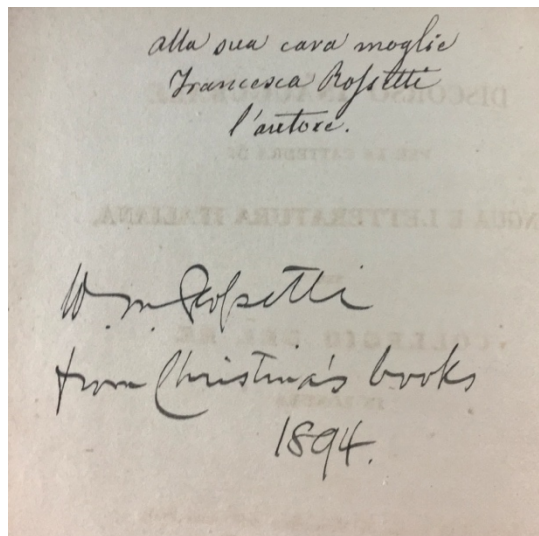 alla sua cara moglie
Francesca Rossetti
l'autore.
W. M. Rossetti
from Christina's books
1894.